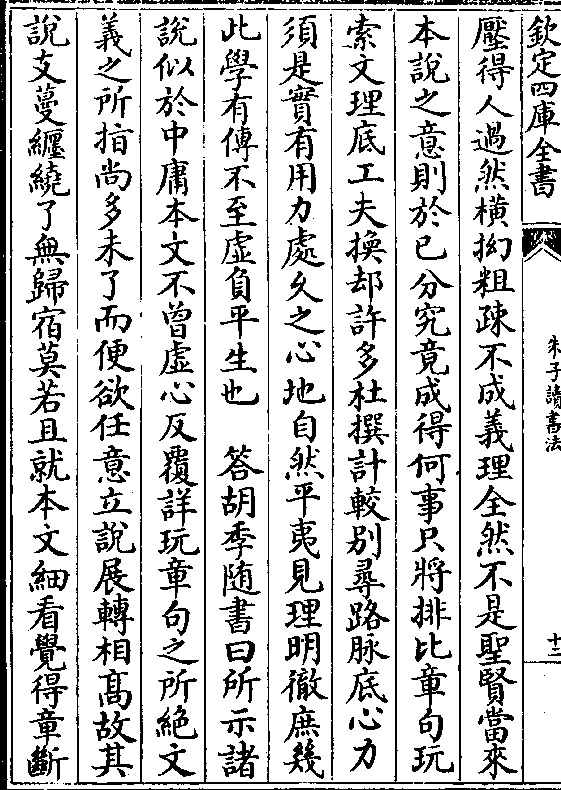 欽定四庫全書
朱子讀書法
十二
壓得人過然橫拗粗疎不成義理全然不是聖賢當來
本說之意則於已分究竟成得何事只將排比章句玩
索文理底工夫換却許多杜撰計較别尋路脉底心力
須是實有用力處久之心地自然平夷見理明徹庶幾
此學有傳不至虚負平生也　答胡季随書曰所示諸
說似於中庸本文不曾虚心反覆詳玩章句之所絶文
義之所指尚多未了而便欲任意立說展轉相髙故其
說支蔓纒繞了無歸宿莫若且就本文細看覺得章斷